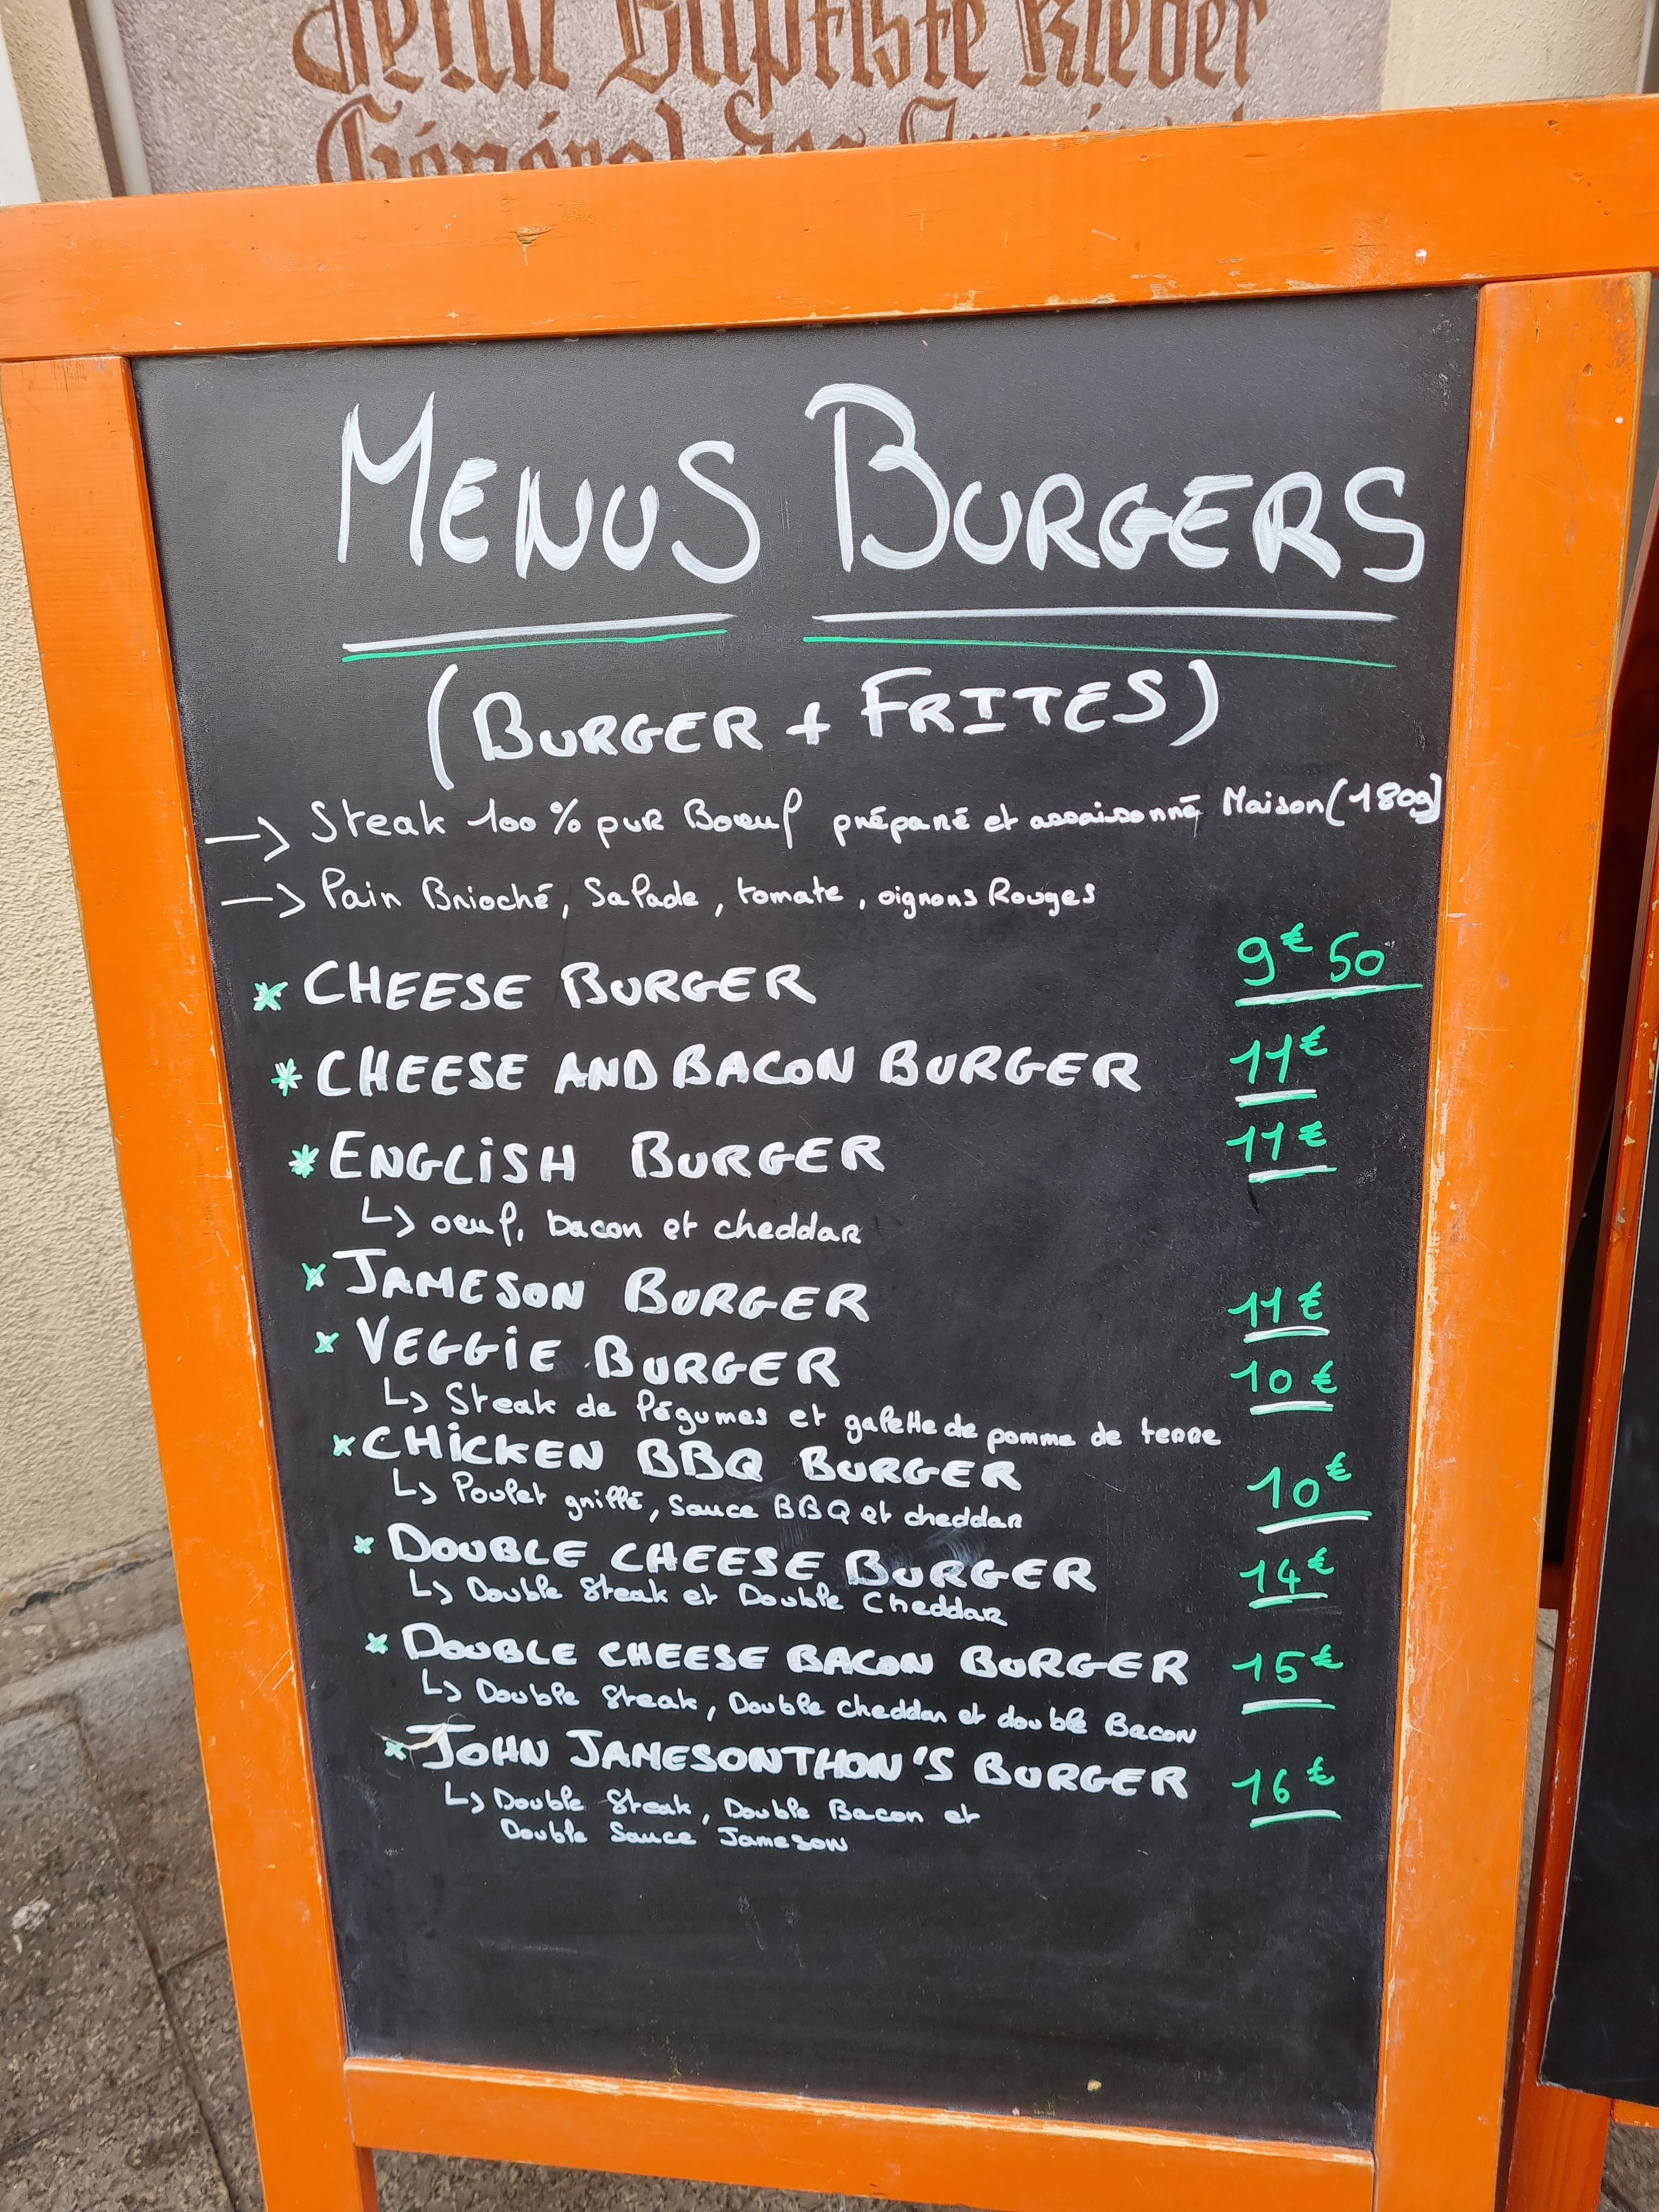 Baptiste Kleber
Général des
MENUS BURGERS
(BURGER + FRITES)
→ Steak 100% pur Boeuf préparé et assaisonné Maison (180g)
→ Pain Brioché, Salade, tomate, oignons Rouges
* CHEESE BURGER 9€50
* CHEESE AND BACON BURGER 11€
* ENGLISH BURGER 11€
↳ oeuf, bacon et cheddar
* JAMESON BURGER 11€
* VEGGIE BURGER 10€
↳ Steak de légumes et galette de pomme de terre
* CHICKEN BBQ BURGER 10€
↳ Poulet grillé, Sauce BBQ et cheddar
* DOUBLE CHEESE BURGER 14€
↳ Double Steak et Double Cheddar
* DOUBLE CHEESE BACON BURGER 15€
↳ Double Steak, Double cheddar et double Bacon
* JOHN JAMESONTHON'S BURGER 16€
↳ Double Steak, Double Bacon et
Double Sauce Jameson